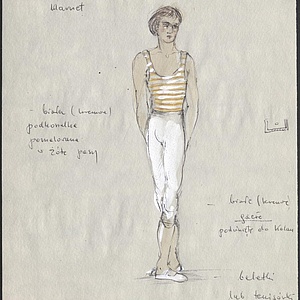 - biała (kremowa)
podkoszulka
pomalowana
w żółte pasy
- białe (kremowe)
gacie
podwinięte do kolan
- baletki
lub tenisówki